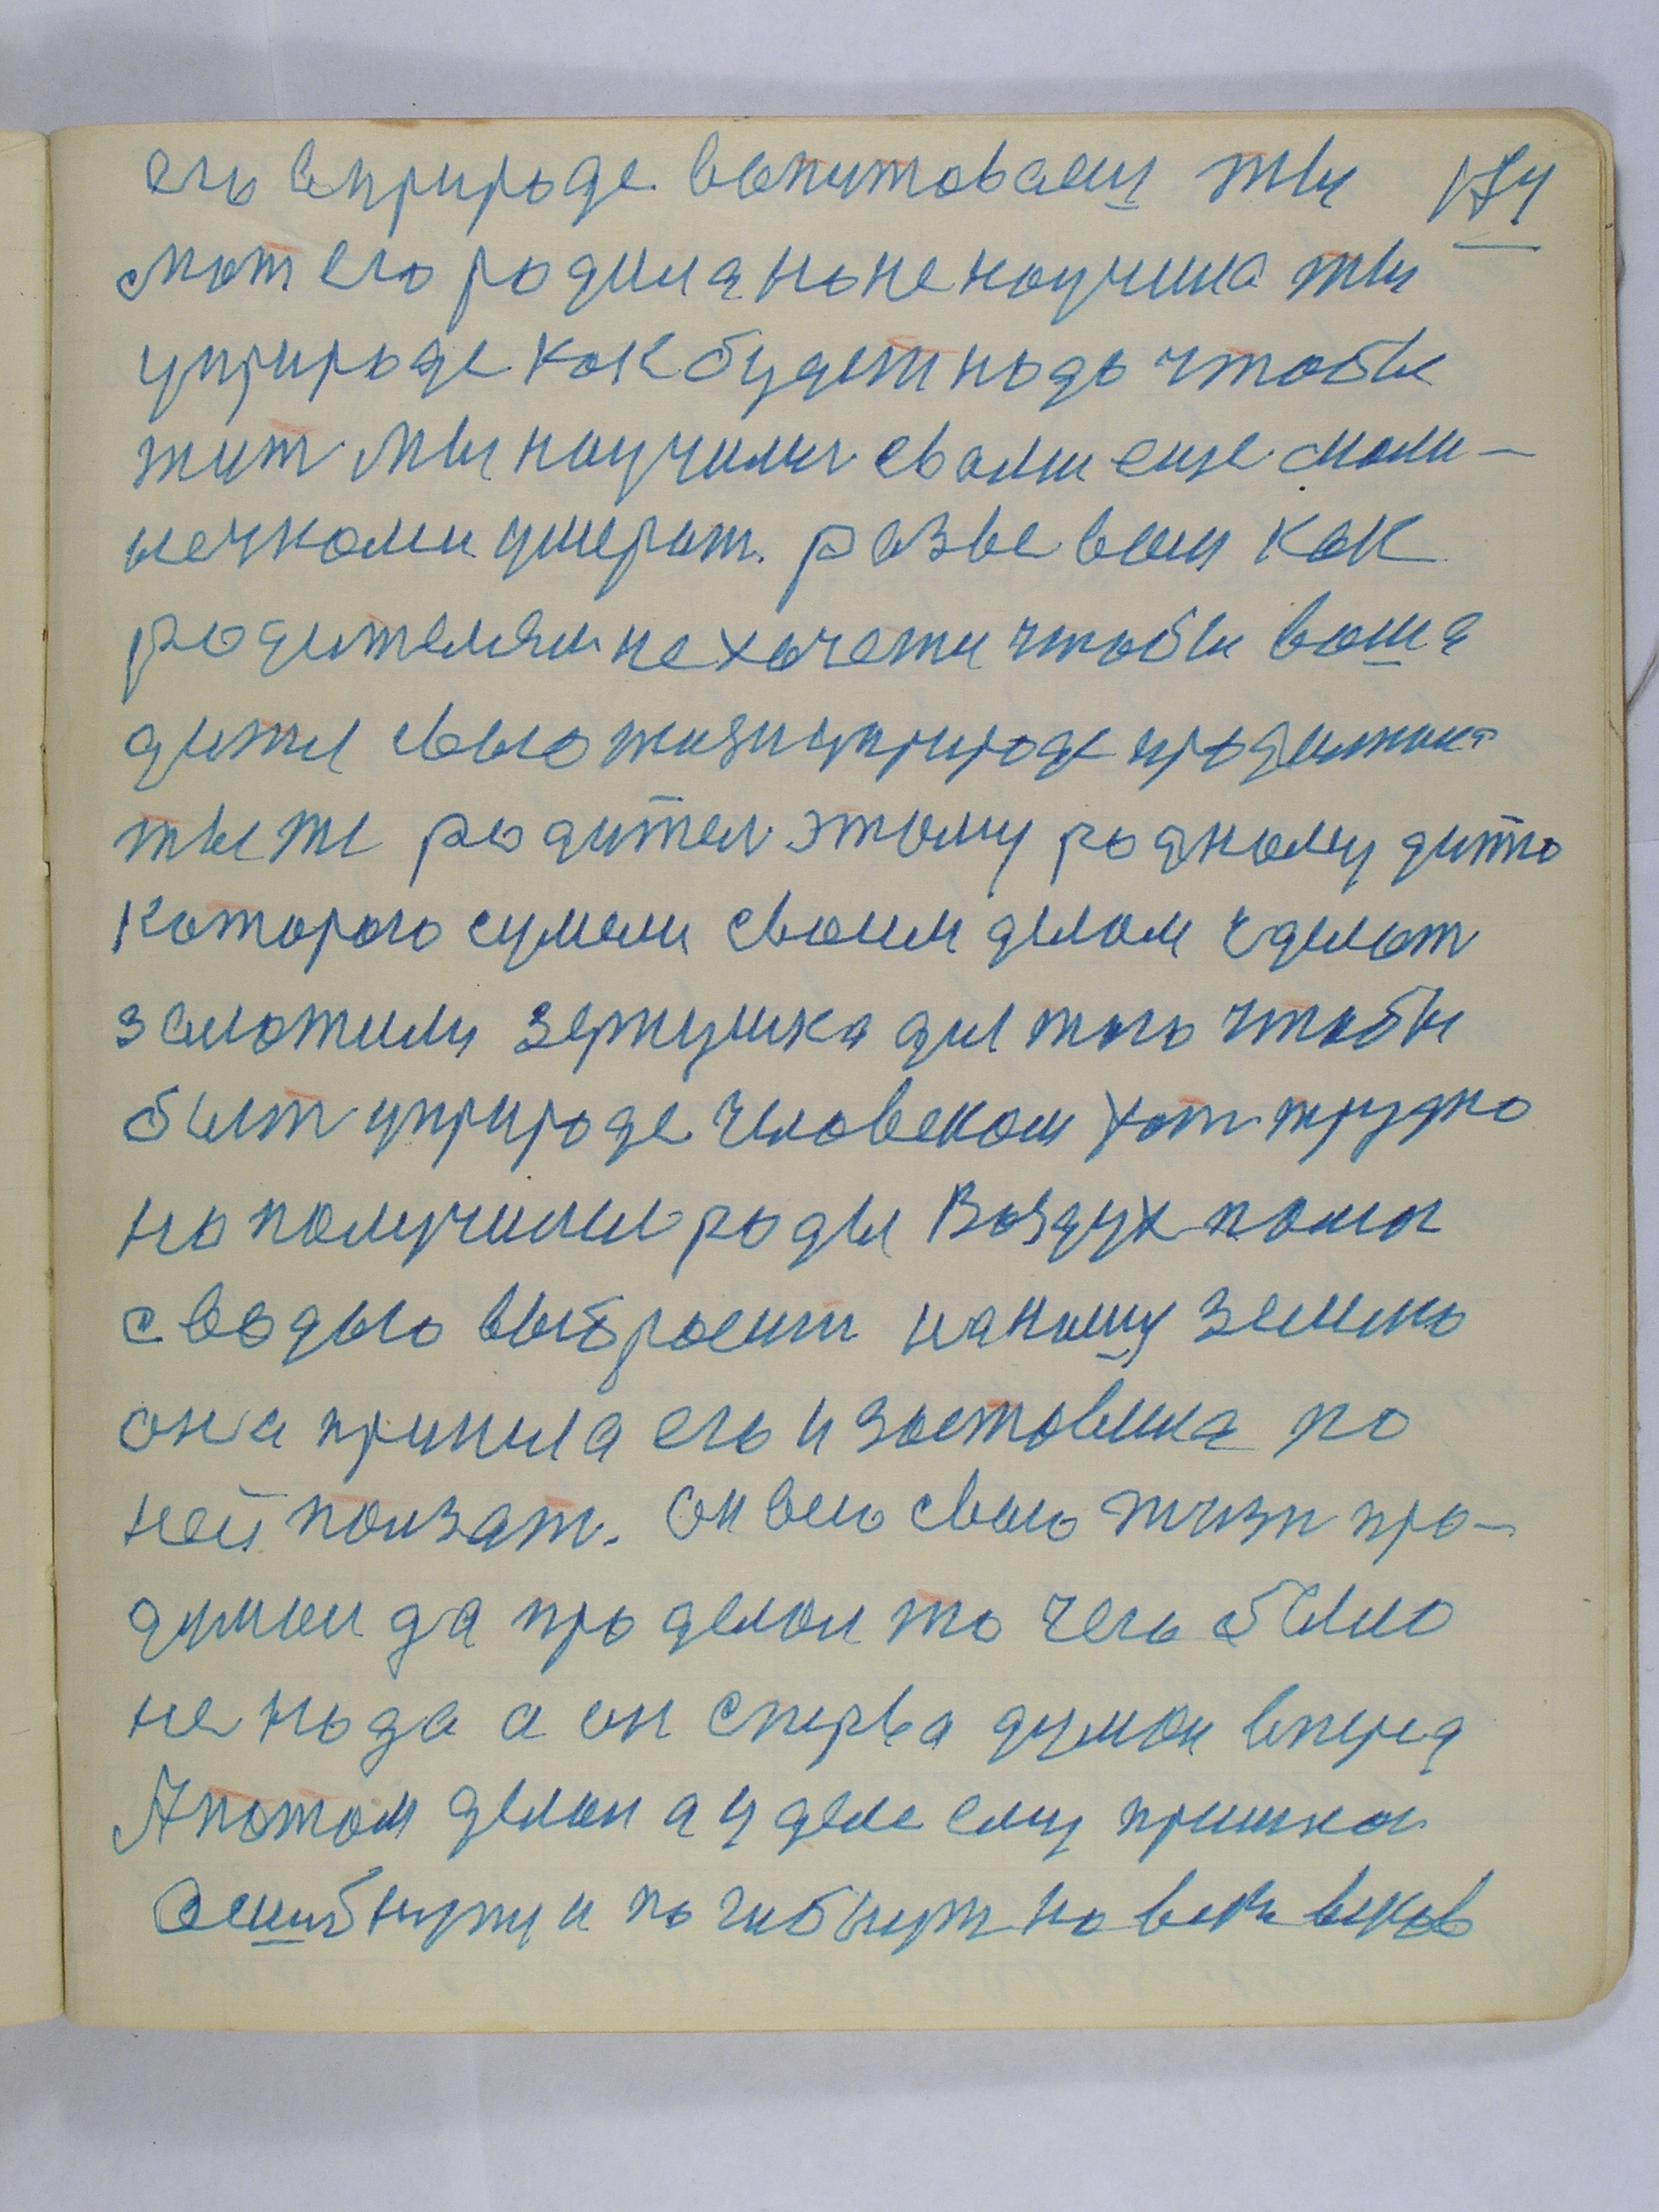 его вприроде вопитоваеш ты 174
мат его родила но не научила ты
уприроде как будет надо чтобы
жит Мы научилис свами еще мали-
нечками умерат. разве вам как
родителям не хочети чтобы ваша
дитя свою жизн уприроде продолжил
ты ж родител этому родному дитю
которого сумели своим делом сделат
заложили зернушка для того чтобы
быт уприроде человеком хот трудно
но получилис роды Воздух пома
с водою выбросит на нашу землю
она приняла его и заставила по
ней ползат. Он всю свою жизн про-
думал да проделал то чего было
не нада а он сперва думал вперед
А потом делал а у деле ему пришлос
Ошибнутци и погибнут на веки веков